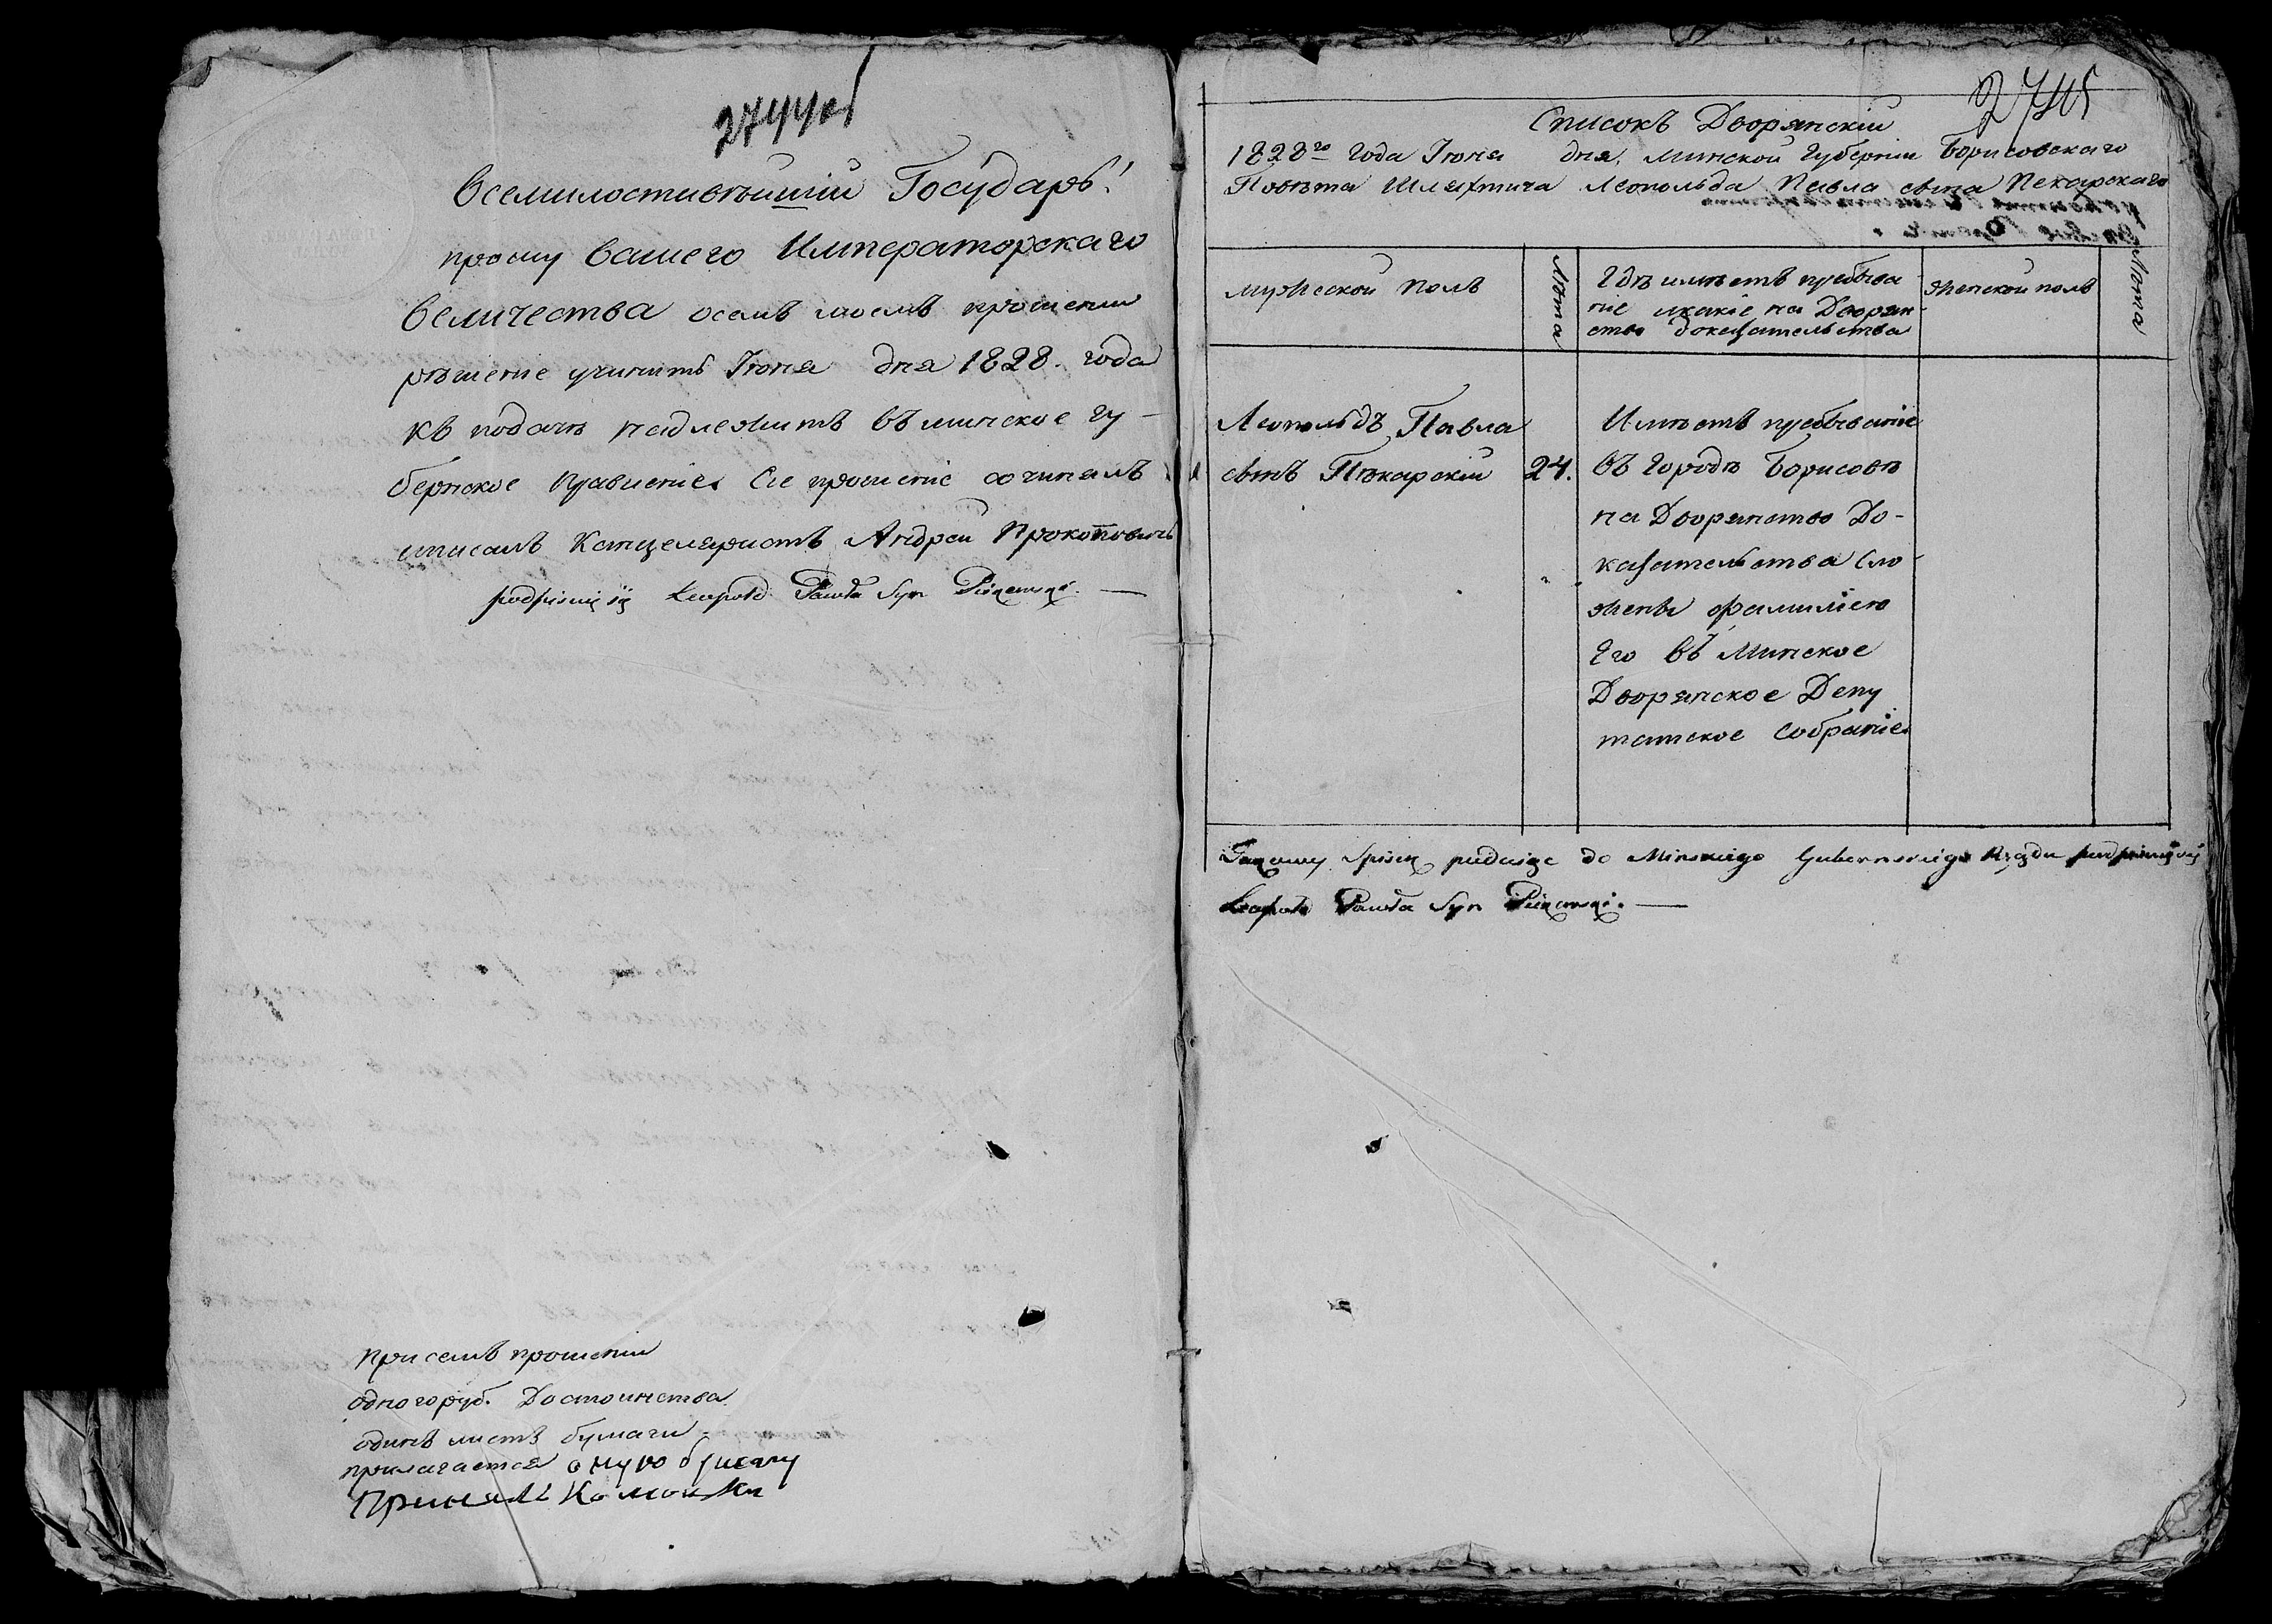 2744об
Всемилостивѣйшій Государь!
прошу Вашего Императорскаго
Величества осемъ моемъ прошеніи
рѣшеніе учинить Іюня дня 1828. года
къ подачѣ надлежитъ въ минское гу-
бернское Правленіе. Сіе прошеніе сочинялъ
иписалъ Канцеляристъ Андрей Прокоповичъ
podpisuię się Leopold Pawła Syn Piekarski. —
при семъ прошеніи
одного руб. Достоинства
одинъ листъ бумаги
прилагается оную бумагу
Принялъ
2745
Списокъ Дворянскій
1828го года Іюня дня. Минской Губерніи Борисовскаго
Повѣта Шляхтича Леопольда Павла сына Пекарскаго
мужеской полъ
Лѣта
Гдѣ имѣетъ пребыва-
ніе икакіе на Дворян-
ство доказательства
женской полъ
Лѣта
Леопольдъ Павла
сынъ Пѣкарскій
24.
Имѣетъ пребываніе
въ Городѣ Борисовѣ
на Дворянство До-
казательства сло-
жены фамиліею
Его въ Минское
Дворянское Депу
татское Собраніе.
Spisek podaiąc do Minskiego Gubernskiego Rządu podpisuię się
Leopold Pawła Syn Piekarski. —